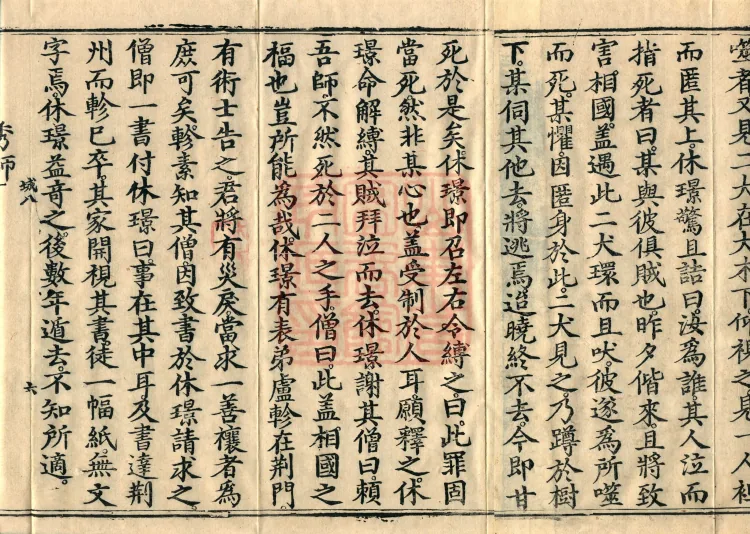 者又見二犬在大木下仰視之見一人袒
而匿其上。休璟驚且詰曰。汝為誰。其人泣而
指死者曰。某與彼俱賊也。昨夕偕來。且將致
害相國。蓋遇此二犬環而且吠。彼遂為所噬
而死。某懼。因匿身於此。二犬見之。乃蹲於樹
下。某伺其他去。將逃焉。迨曉終不去。今即甘
死於是矣。休璟即召左右令縛之。曰。此罪固
當死。然非某心也。蓋受制於人耳。願釋之。休
璟命解縛。其賊拜泣而去。休璟謝其僧曰。賴
吾師。不然死於二人之手。僧曰。此蓋相國之
福也。豈所能為哉。休璟有表弟盧軫在荊門。
有術士告之。君將有災戾。當求一善禳者為
庶可矣。軫素知其僧。因致書於休璟請求之。
僧即一書付休璟曰。事在其中耳。及書達荊
州而軫已卒。其家開視其書。徒一幅紙。無文
字焉。休璟益奇之。後數年遁去。不知所適。
城八 六